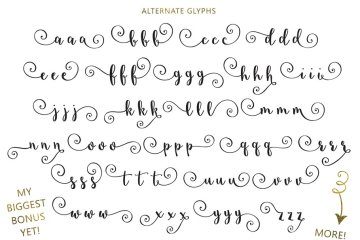 ALTERNATE GLYPHS
aaa bbb ccc ddd
eee fff ggg hhh iii
jjj kkk lll mmm
nnn ooo ppp qqq rrr
sss ttt uuu vvv
www xxx yyy zzz
MY
BIGGEST
BONUS
YET!
MORE!